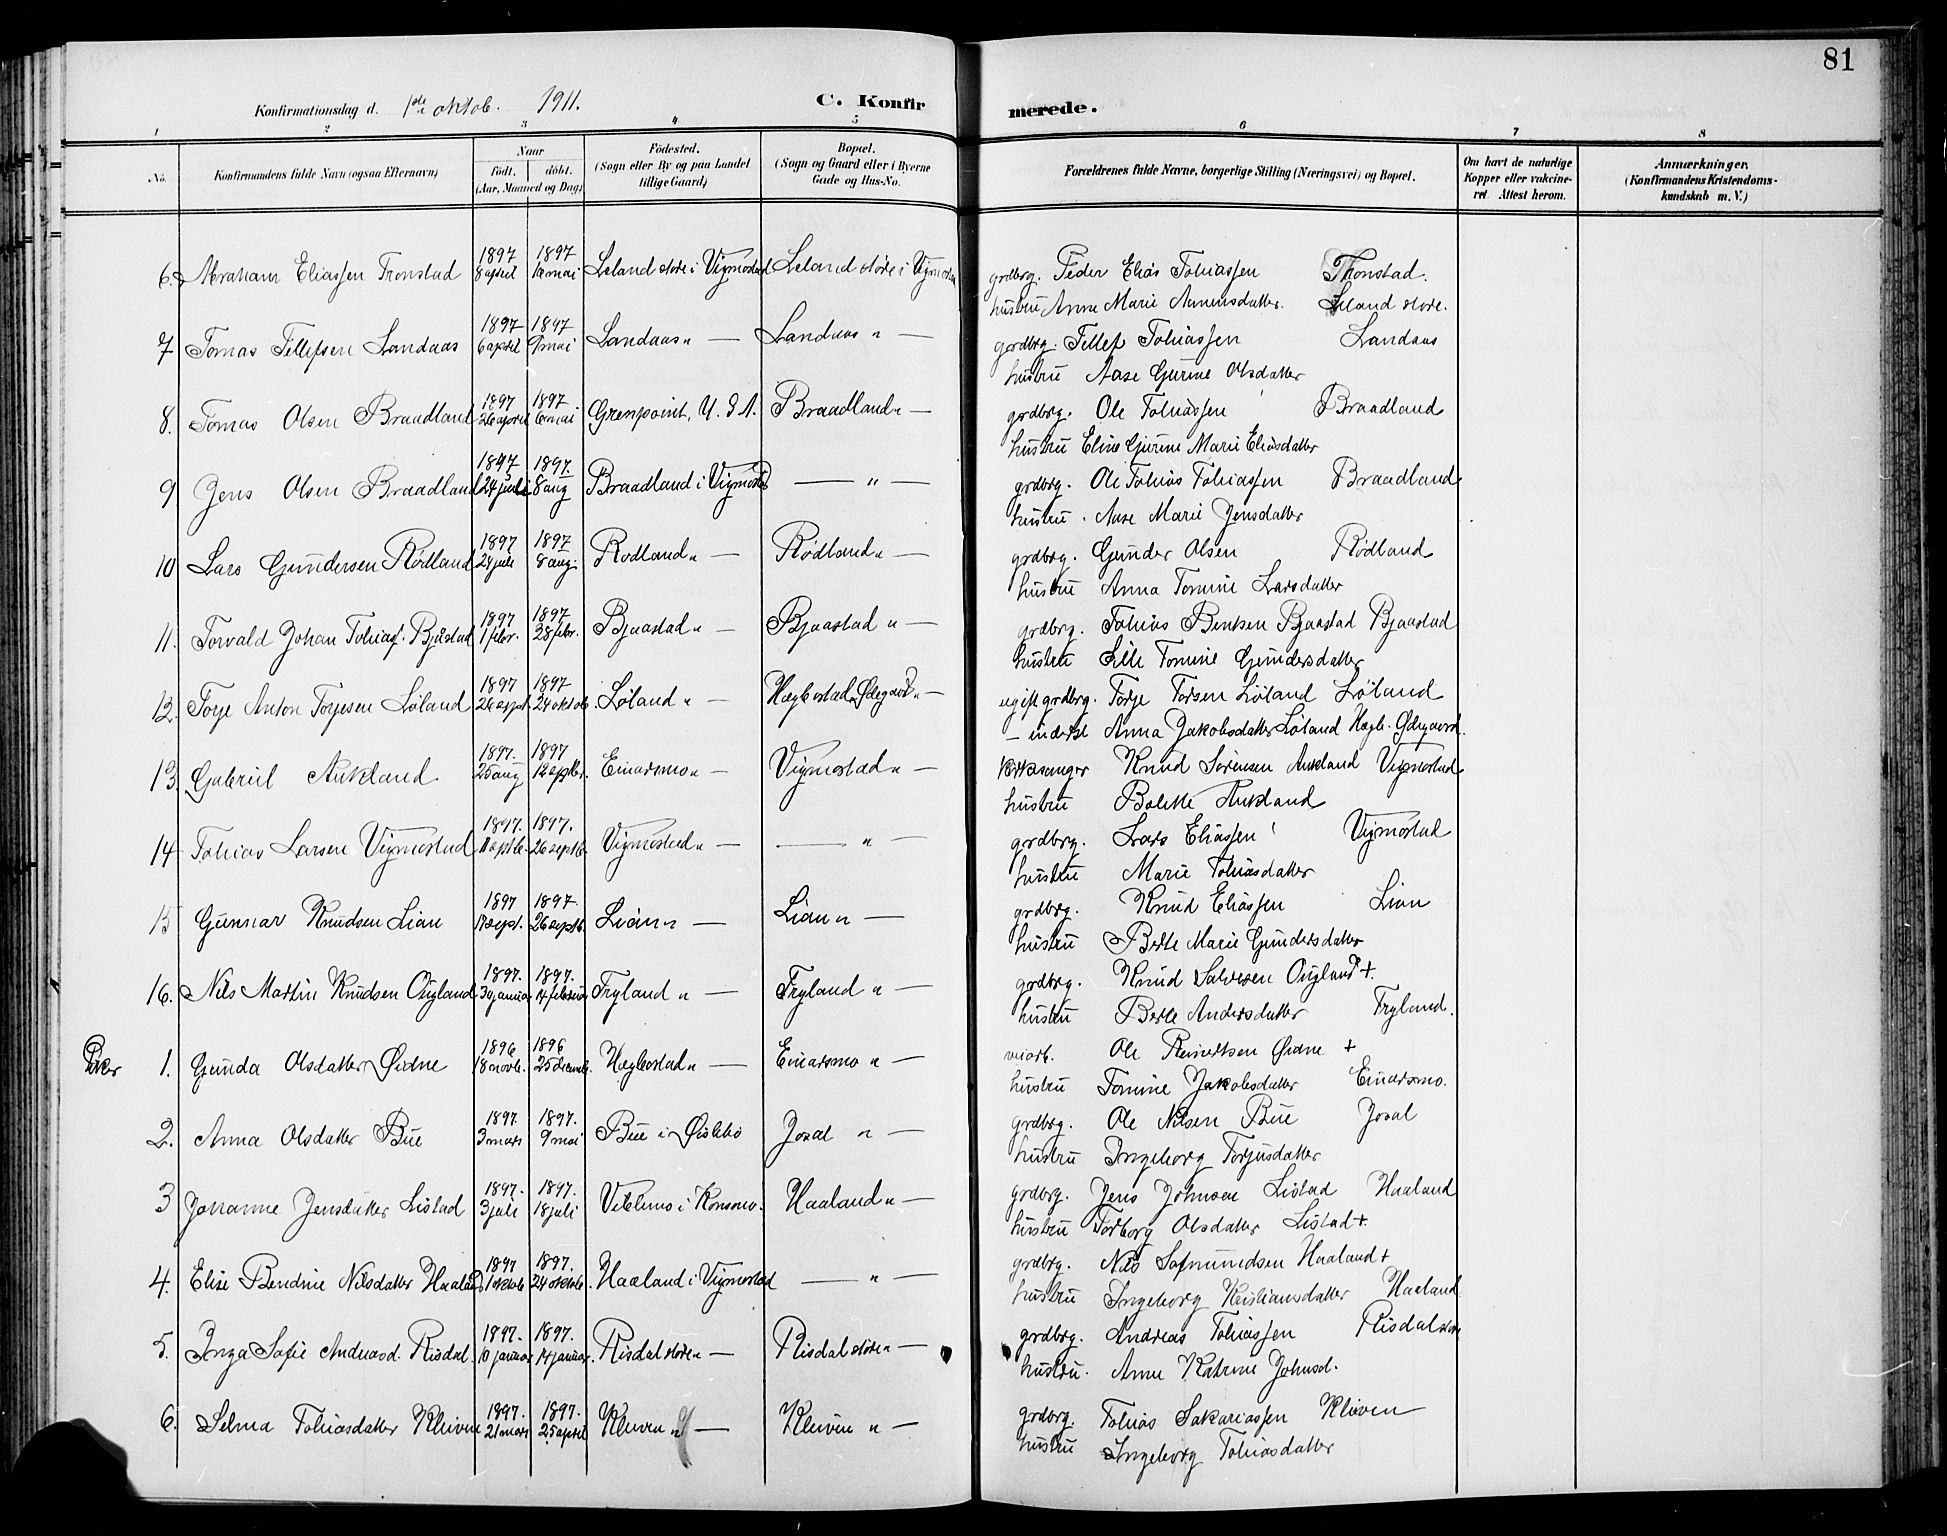 81
Konfirmationsdag d. 1ste oktob. 1911. C. Konfirmerede.
1 2 3 4 5 6 7 8
No. Konfirmandens fulde Navn (ogsaa Efternavn) Naar født. døbt. (Aar, Maaned og Dag) Fødested. (Sogn eller By og paa Landet tillige Gaard) Bopæl. (Sogn og Gaard eller i Byerne Gade og Hus-No. Forældrenes fulde Navne, borgerlige Stilling (Næringsvei) og Bopæl. Om havt de naturlige Kopper eller vakcineret. Attest herom. Anmærkninger. (Konfirmandens Kristendomskundskab m. V.)
6. Abraham Eliassen Tronstad 1897 8 april 1897 mai Leland store i Vigmostad Leland store i Vigmostad grdbrg. Peder Elias Tobiassen Thonstad.
hustru Anne Marie Leland store.
7 Tomas Tellefsen Landaas 1897 6 april 1897 9 mai Landaas " — Landaas " — gardbrg. Tellef Tobiassen Landaas
hustru Aase Gurine Olsdatter
8. Tomas Olsen Braadland 1897 26 april 1897 mai Grenpoint, U.S.A. Braadland " — grdbrg. Ole Tobiassen Braadland
hustru Eline Gurine Marie Eliasdatter
9 Jens Olsen Braadland 1897 24 juli 1897. 8 aug Braadland i Vigmostad — " — grdbrg. Ole Tobias Tobiassen Braadland
hustru. Aase Marie Jensdatter
10 Lars Gundersen Rødland 1897 24 juli 1897 8 aug. Rødland " — Rødland " — grdbrg. Gunder Olsen Rødland
hustru Anna Tomine Larsdatter
11. Torvald Johan Tobias. Bjåstad 1897 1 febr. 1897 28 febr. Bjaastad " — Bjaastad " — grdbrg. Tobias Bentsen Bjaastad Bjaastad
hustru Lille Tomine Gundersdatter
12. Torje Anton Torjesen Løland 1897 26 sept. 1897 24 oktob. Løland " — Hægbostad, Ødegaard " — ugift grdbrg. Torje Torsen Løland Løland
— inderst Anna Jakobsdatter Løland Hægb. Ødegaard.
13. Gabriel Aukland 1897. 25 aug 1897 12 septbr. Einarsmo " — Vigmostad " — kirkesanger Knud Sørensen Aukland Vigmostad
hustru Bolette Aukland
14 Tobias Larsen Vigmostad 1897. septb. 1897. 26 septb. Vigmostad " — — " — grdbrg. Lars Eliassen Vigmostad
hustru Marie Tobiasdatter
15 Gunnar Knudsen Lian 1897 sept. 1897. 26 septb. Lian " — Lian " — grdbrg. Knud Eliassen Lian
hustru Berte Marie Gundersdatter
16. Nils Martin Knudsen Øigland 1897. 30 januar 1897. 14 februar Fryland " — Fryland " — grdbrg. Knud Salvesen Øigland +.
hustru Berte Andersdatter Fryland.
Piker 1. Gunda Olsdatter Øidne 1896 18 novb. 1896 25 decemb. Hægbostad " — Einarsmo " — veiarb. Ole Reinertsen Øidne +
hustru Tomine Jakobsdatter Einarsmo.
2. Anna Olsdatter Bue 1897. 3 mars 1897. 9 mai Bue i Øislebø Josal " — grdbrg. Ole Nilsen Bue Josal
hustru Ingeborg Torjusdatter
3 Johanne Jensdatter Listad 1897. 3 juli 1897. 18 juli Viblemo i Konsmo. Haaland " — grdbrg. Jens Johnsen Listad Haaland
hustru Torborg Olsdatter Listad +.
4. Elise Bendine Nilsdatter Haaland 1897 1 oktob 1897. 24 oktob. Haaland i Vigmostad — " — grdbrg. Nils Haaland +
hustru Ingeborg Kristiansdatter Haaland
5. Inga Sofie Andreasd. Risdal 1897. 10 januar 1897. 14 januar. Risdal store " — Risdal store " — grdbrg. Andreas Tobiassen Risdal store
hustru. Anne Katrine Johnsd.
6. Selma Tobiasdatter Kleiven 1897. 21 mars 1897. 25 april Kleiven " — Kleiven " — grdbrg. Tobias Sakariassen Kleiven
hustru Ingeborg Tobiasdatter